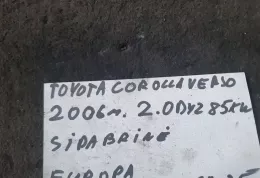 TOYOTA COROLLA VERSO
2006m. 2.0D YZ 85KW
SIDABRINĖ
EUROPA